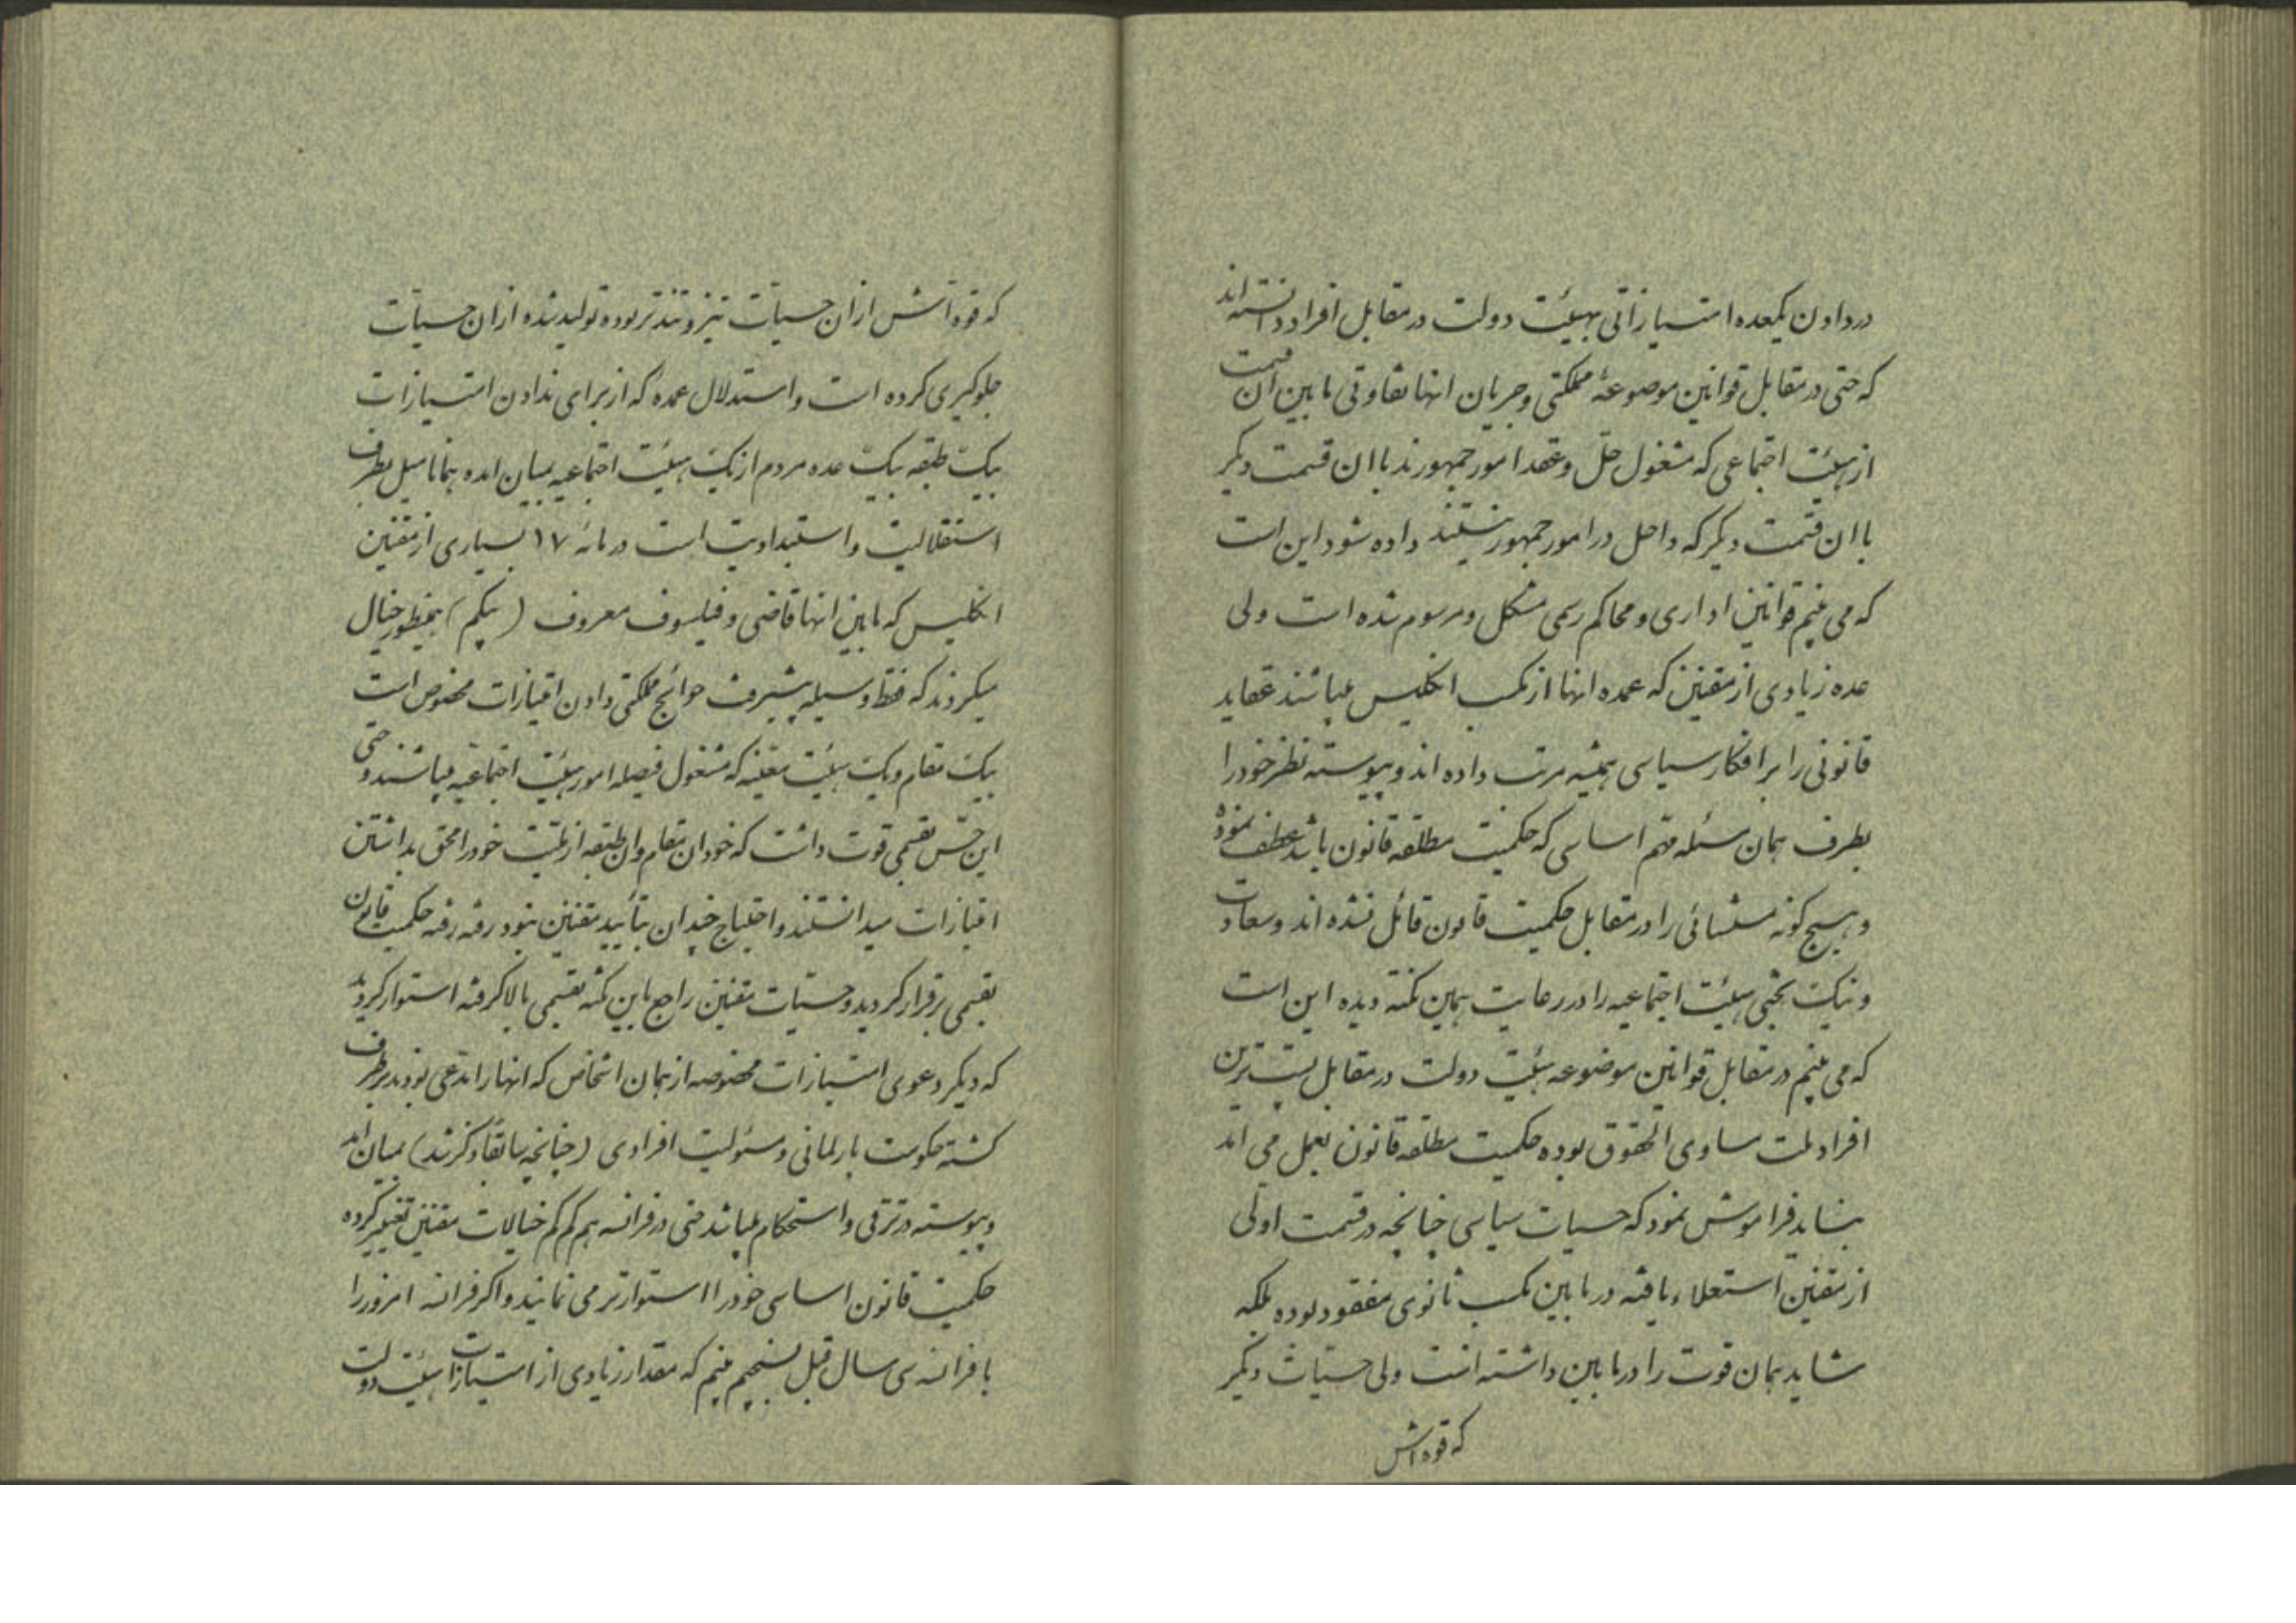 در دادن یکعده امتیازاتی بهیئت دولت در مقابل افراد دانسته اند
که حتی در مقابل قوانین موضوعهٔ مملکتی و جریان انها تفاوتی مابین ان قسمت
از هیئت اجتماعی که مشغول حل و عقد امور جمهورند با ان قسمت دیگر
با ان قسمت دیگر که داخل در امور جمهور نیستند داده شود این است
که می بینم قوانین اداری و محاکم رسمی مشکل و مرسوم شده است ولی
عده زیادی از مقننین که عمده انها از مکتب انکلیس میباشند عقاید
قانونی را بر افکار سیاسی همیشه مرتب داده اند و پیوسته نظر خود را
بطرف همان مسئله مهم اساسی که حکمیت مطلقه قانون باشد عطف نموده
و هیچ کونه مستثنائی را در مقابل حکمیت قانون قائل نشده اند و سعادت
و نیکبختی هیئت اجتماعیه را در رعایت همین نکته دیده این است
که می بینم در مقابل قوانین موضوعه هیئت دولت در مقابل پست ترین
افراد ملت مساوی الحقوق بوده حکمیت مطلقه قانون بعمل می اید
نباید فراموش نمود که حسیات سیاسی چنانچه در قسمت اولی
از مقننین استعلاء یافته در مابین مکتب ثانوی مفقود بوده بلکه
شاید همان قوت را در مابین داشته است ولی حسیات دیگر
که قوه اش
که قوه اش از ان حسیات تیز و تندتر بوده تولید شده از ان حسیات
جلوکیری کرده است و استدلال عمده که از برای ندادن امتیازات
بیک طبقه بیک عده مردم از یک هیئت اجتماعیه بمیان امده همانا میل بطرف
استقلالیت و استبدادیت است در مائه ۱۷ بسیاری از مقننین
انکلیس که مابین انها قاضی و فیلسوف معروف (بیکم) بهمینطور خیال
میکردند که فقط وسیله پیشرفت حوائج مملکتی دادن امتیازات مخصوص است
بیک مقام و یک هیئت معینه که مشغول فیصله امور هیئت اجتماعیه میباشند و حتی
این حس بقسمی قوت داشت که خود ان مقام و ان طبقه از ملت خود را محق بداشتن
امتیازات میدانستند و احتیاج چندان بتأیید مقننین نبود رفته رفته حکمیت قانون
بقسمی برقرار کردید و حسیات مقننین راجع باین نکته بقسمی بالا کرفته استوار کردید
که دیکر دعوی امتیازات مخصوصه از همان اشخاص که انها را مدعی بودند برطرف
کشته حکومت پارلمانی و مسئولیت افرادی (چنانچه سابقاً ذکر شد) بمیان امد
و پیوسته در ترقی و استحکام میباشد حتی در فرانسه هم کم کم خیالات مقننین تغییر کرده
حکمیت قانون اساسی خود را استوارتر می نمایند و اکر فرانسه امروز را
با فرانسه سی سال قبل بسنجیم بینم که مقدار زیادی از امتیازات هیئت دولت